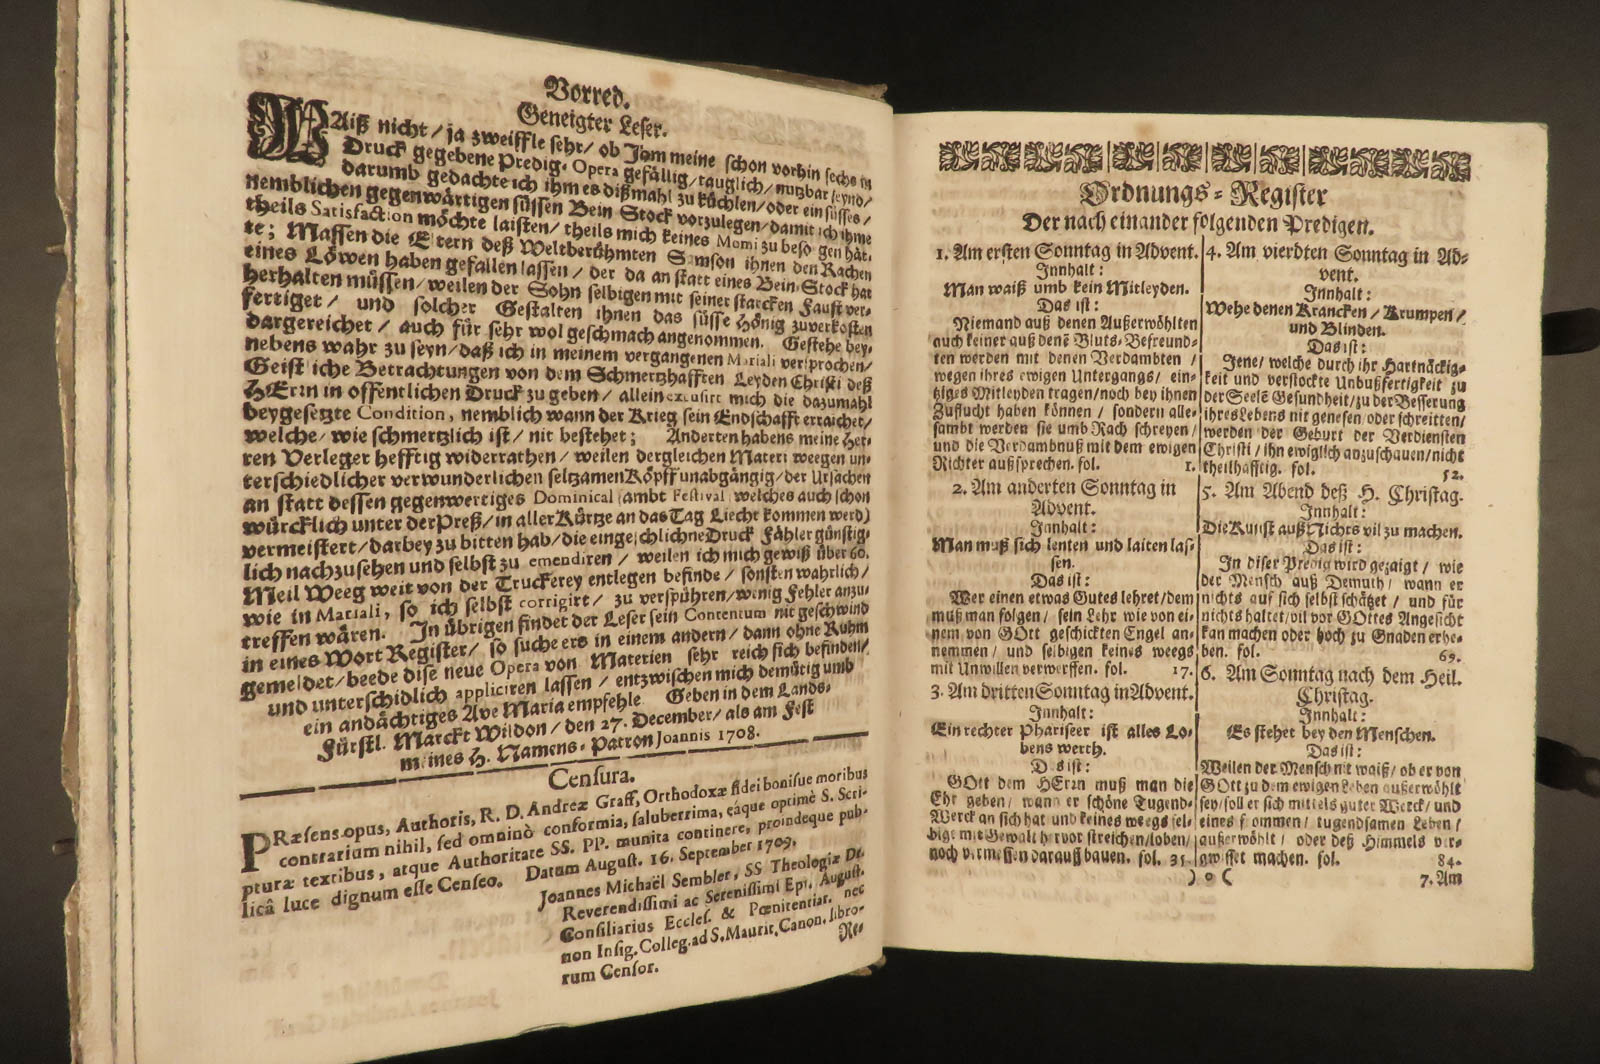 Vorred.
Geneigter Leser.
WAiß nicht / ja zweiffle sehr / ob Jom meine schon vorhin sechs in
Druck gegebene Predig-Opera gefällig / tauglich / nutzbar seynd /
darumb gedachte ich ihm es dißmahl zu küchlen / oder ein süsses /
nemblichen gegenwärtigen süssen Bein Stock vorzulegen / damit ich ihme
theils Satisfaction möchte laisten / theils mich keines Momi zu beso gen hät-
te; Massen die Eltern deß Weltberühmten Samson ihnen den Rachen
eines Löwen haben gefallen lassen / der da an statt eines Bein-Stock hat
herhalten müssen / weilen der Sohn selbigen mit seiner starcken Faust ver-
fertiget / und solcher Gestalten ihnen das süsse Hönig zuverkosten
dargereichet / auch für sehr wol geschmach angenommen. Gestehe bey-
nebens wahr zu seyn / daß ich in meinem vergangenen Mariali versprochen /
Geistliche Betrachtungen von dem Schmertzhafften Leyden Christi deß
HErrn in offentlichen Druck zu geben / allein excusirt mich die dazumahl
beygesetzte Condition, nemblich wann der Krieg sein Endschafft erraichet /
welche / wie schmertzlich ist / nit bestehet; Anderten habens meine Her-
ren Verleger hefftig widerrathen / weilen dergleichen Materi weegen un-
terschiedlicher verwunderlichen seltzamen Köpff unabgängig / der Ursachen
an statt dessen gegenwertiges Dominical sambt Festival welches auch schon
würcklich unter der Preß / in aller Kürtze an das Tag Liecht kommen werd)
vermeistert / darbey zu bitten hab / die eingeschlichne Druck Fähler günstig-
lich nachzusehen und selbst zu emendiren / weilen ich mich gewiß über 60.
Meil Weeg weit von der Truckerey entlegen befinde / sonsten wahrlich /
wie in Mariali, so ich selbst corrigirt / zu verspühren / winig Fehler anzu-
treffen wären. In übrigen findet der Leser sein Contentum nit geschwind
in eines Wort Register / so suche ers in einem andern / dann ohne Ruhm
gemeldet / beede dise neue Opera von Materien sehr reich sich befinden /
und unterschidlich appliciren lassen / entzwischen mich demütig umb
ein andächtiges Ave Maria empfehle Geben in dem Lands-
Fürstl. Marckt Wildon / den 27. December / als am Fest
meines H. Namens-Patron Joannis 1708.
Censura.
PRæsens opus, Authoris, R. D. Andreæ Graff, Orthodoxæ fidei bonisue moribus
contrarium nihil, sed omninò conformia, saluberrima, eáque optimè S. Scri-
pturæ textibus, atque Authoritate SS. PP. munita continere, proindeque pub-
licâ luce dignum esse Censeo. Datum August. 16. September 1709.
Joannes Michaël Sembler, SS Theologiæ Dr.
Reverendissimi ac Serenissimi Epi. August.
Consiliarius Eccles. & Pœnitentiar. nec
non Insig. Colleg. ad S. Maurit. Canon. libro-
rum Censor.
Re-
Ordnungs-Register
Der nach einander folgenden Predigen.
1. Am ersten Sonntag in Advent.
Innhalt:
Man waiß umb kein Mitleyden.
Das ist:
Niemand auß denen Außerwöhlten
auch keiner auß denē Bluts-Befreund-
ten werden mit denen Verdambten /
wegen ihres ewigen Untergangs / ein-
tziges Mitleyden tragen / noch bey ihnen
Zuflucht haben können / sondern alle-
sambt werden sie umb Rach schreyen /
und die Verdambnuß mit dem ewigen
Richter außsprechen. fol. 1.
2. Am anderten Sonntag in
Advent.
Innhalt:
Man muß sich lenten und laiten las-
sen.
Das ist:
Wer einen etwas Gutes lehret / dem
muß man folgen / sein Lehr wie von ei-
nem von GOtt geschickten Engel an-
nemmen / und selbigen keines weegs
mit Unwillen verwerffen. fol. 17.
3. Am dritten Sonntag in Advent.
Innhalt:
Ein rechter Phariseer ist alles Lo-
bens werth.
Das ist:
GOtt dem HErrn muß man die
Ehr geben / wann er schöne Tugend-
Werck an sich hat und keines weegs sel-
bige mit Gewalt hervor streichen / loben /
noch vermessen darauß bauen. fol. 35
4. Am vierdten Sonntag in Ad-
vent.
Innhalt:
Wehe denen Krancken / Krumpen /
und Blinden.
Das ist:
Jene / welche durch ihr Hartnäckig-
keit und verstockte Unbußfertigkeit zu
der Seelē Gesundheit / zu der Besserung
ihres Lebens nit genesen oder schreitten /
werden der Geburt der Verdiensten
Christi / ihn ewiglich anzuschauen / nicht
theilhafftig. fol. 52.
5. Am Abend deß H. Christag.
Innhalt:
Die Kunst auß Nichts vil zu machen.
Das ist:
In diser Predig wird gezaigt / wie
der Mensch auß Demuth / wann er
nichts auf sich selbst schätzet / und für
nichts haltet / vil vor GOttes Angesicht
kan machen oder hoch zu Gnaden erhe-
ben. fol. 69.
6. Am Sonntag nach dem Heil.
Christag.
Innhalt:
Es stehet bey den Menschen.
Das ist:
Weilen der Mensch nit waiß / ob er von
GOtt zu dem ewigen Leben außerwöhlt
sey / soll er sich mittels guter Werck / und
eines frommen / tugendsamen Leben /
außerwöhlt / oder deß Himmels ver-
gwisset machen. fol. 84.
) o (
7. Am